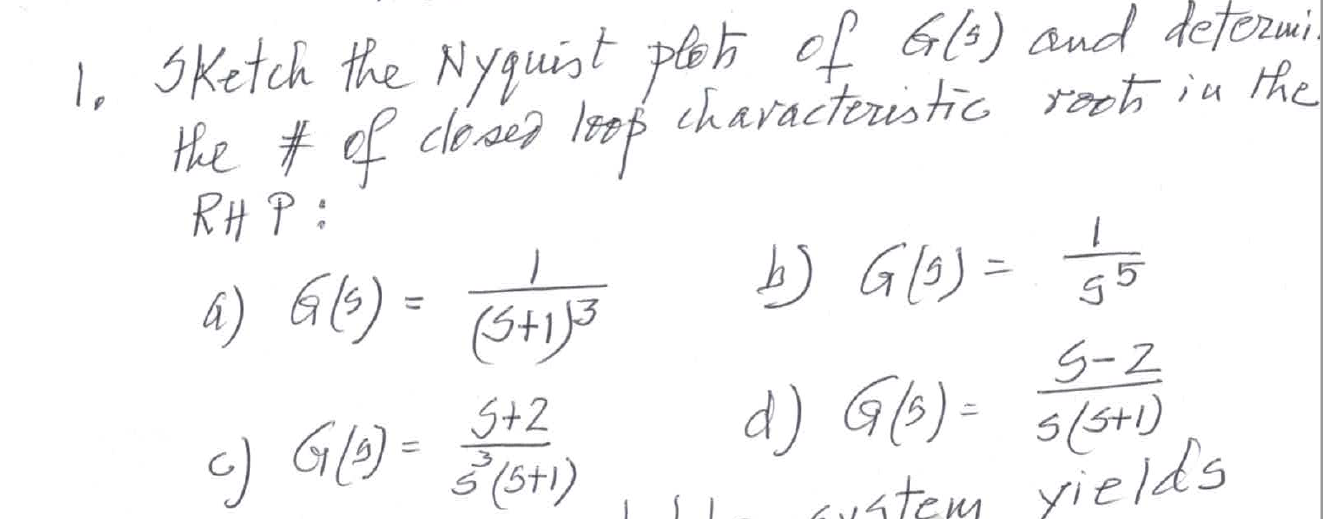 1. Sketch the Nyquist plots of G(s) and determi
the # of closed loop characteristic roots in the
RHP:
a) G(s) = 1/(s+1)^3 b) G(s) = 1/s^5
c) G(s) = s+2/s^3(s+1) d) G(s) = s-2/s(s+1)
system yields